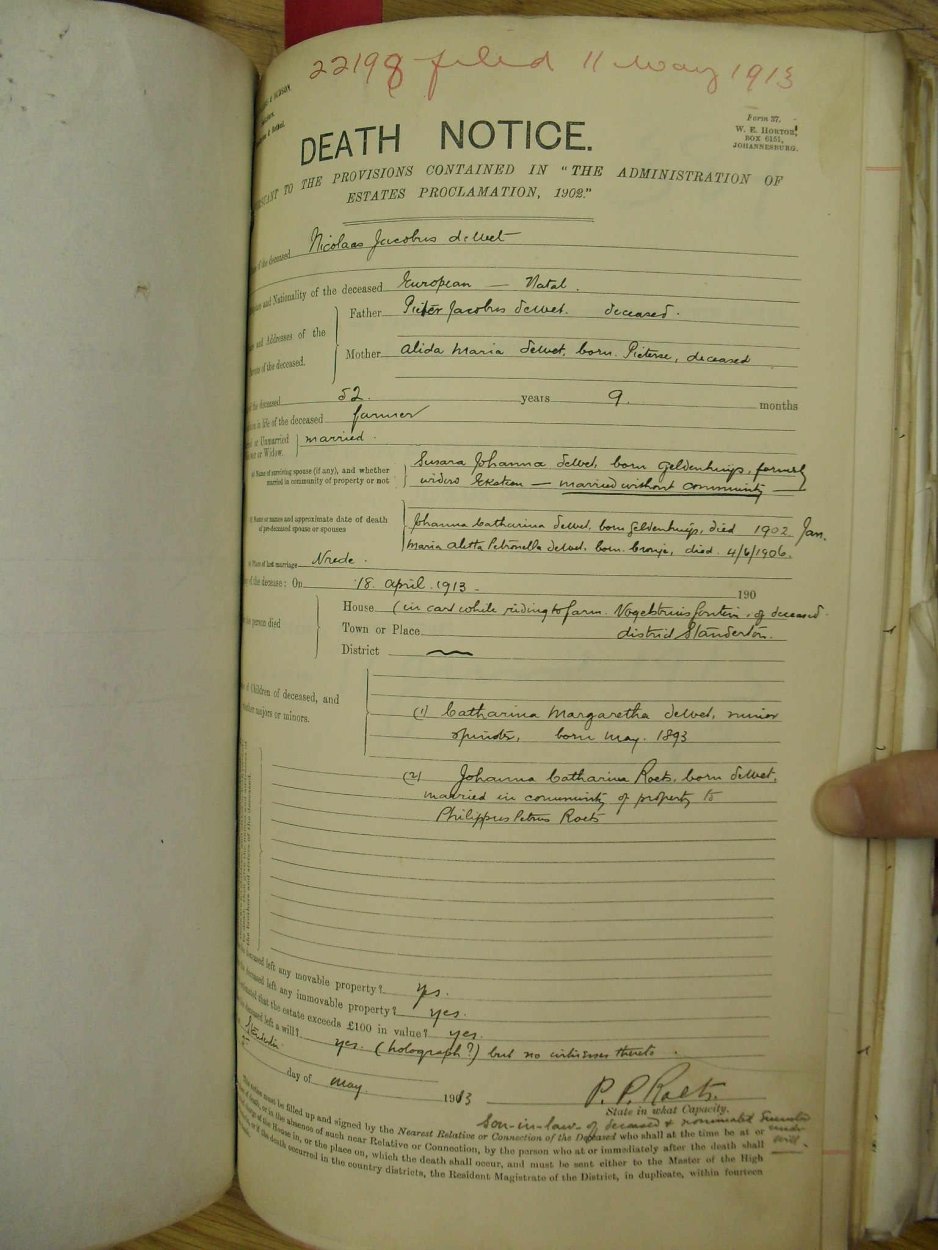 22198 filed 11 May 1913
Form 37.
W. E. HORTOR,
BOX 6151,
JOHANNESBURG.
DEATH NOTICE.
TO THE PROVISIONS CONTAINED IN "THE ADMINISTRATION OF
ESTATES PROCLAMATION, 1902."
of the deceased Nicolaas Jacobus deWet
and Nationality of the deceased European — Natal.
Father Pieter Jacobus deWet. deceased.
and Addresses of the
of the deceased.
Mother Alida Maria deWet, born Pieterse, deceased
of the deceased 52 years 9. months
in life of the deceased farmer
or Unmarried married.
or Widow.
Name of surviving spouse (if any), and whether
married in community of property or not
Susara Johanna deWet, born Geldenhuijs, formerly
widow — married without community —
Name or names and approximate date of death
of pre-deceased spouse or spouses
Johanna Catharina deWet, born Geldenhuijs, died 1902 Jan.
Maria Aletta Petronella deWet, born Cronje, died 4/6/1906.
Place of last marriage Vrede.
of the decease: On 18 April 1913 190
person died
House (in cart while riding to farm Vogelstruisfontein, of deceased
Town or Place district Standerton.
District —
of Children of deceased, and
majors or minors.
(1) Catharina Margaretha deWet, minor
spinster, born May. 1893
(2) Johanna Catharina Roets, born deWet,
married in community of property to
Philippus Petrus Roets
deceased left any movable property? yes.
deceased left any immovable property? yes.
that the estate exceeds £100 in value? yes.
deceased left a will? yes. (holograph?) but no witnesses thereto.
Standerton
day of May 1913
P. P. Roets.
State in what Capacity.
Son-in-law of deceased & nominated
under will.
This notice must be filled up and signed by the Nearest Relative or Connection of the Deceased who shall at the time be at or
of death, or in the absence of such near Relative or Connection, by the person who at or immediately after the death shall
of the House in, or the place on, which the death shall occur, and must be sent either to the Master of the High
or if the death occurred in the country districts, the Resident Magistrate of the District, in duplicate, within fourteen